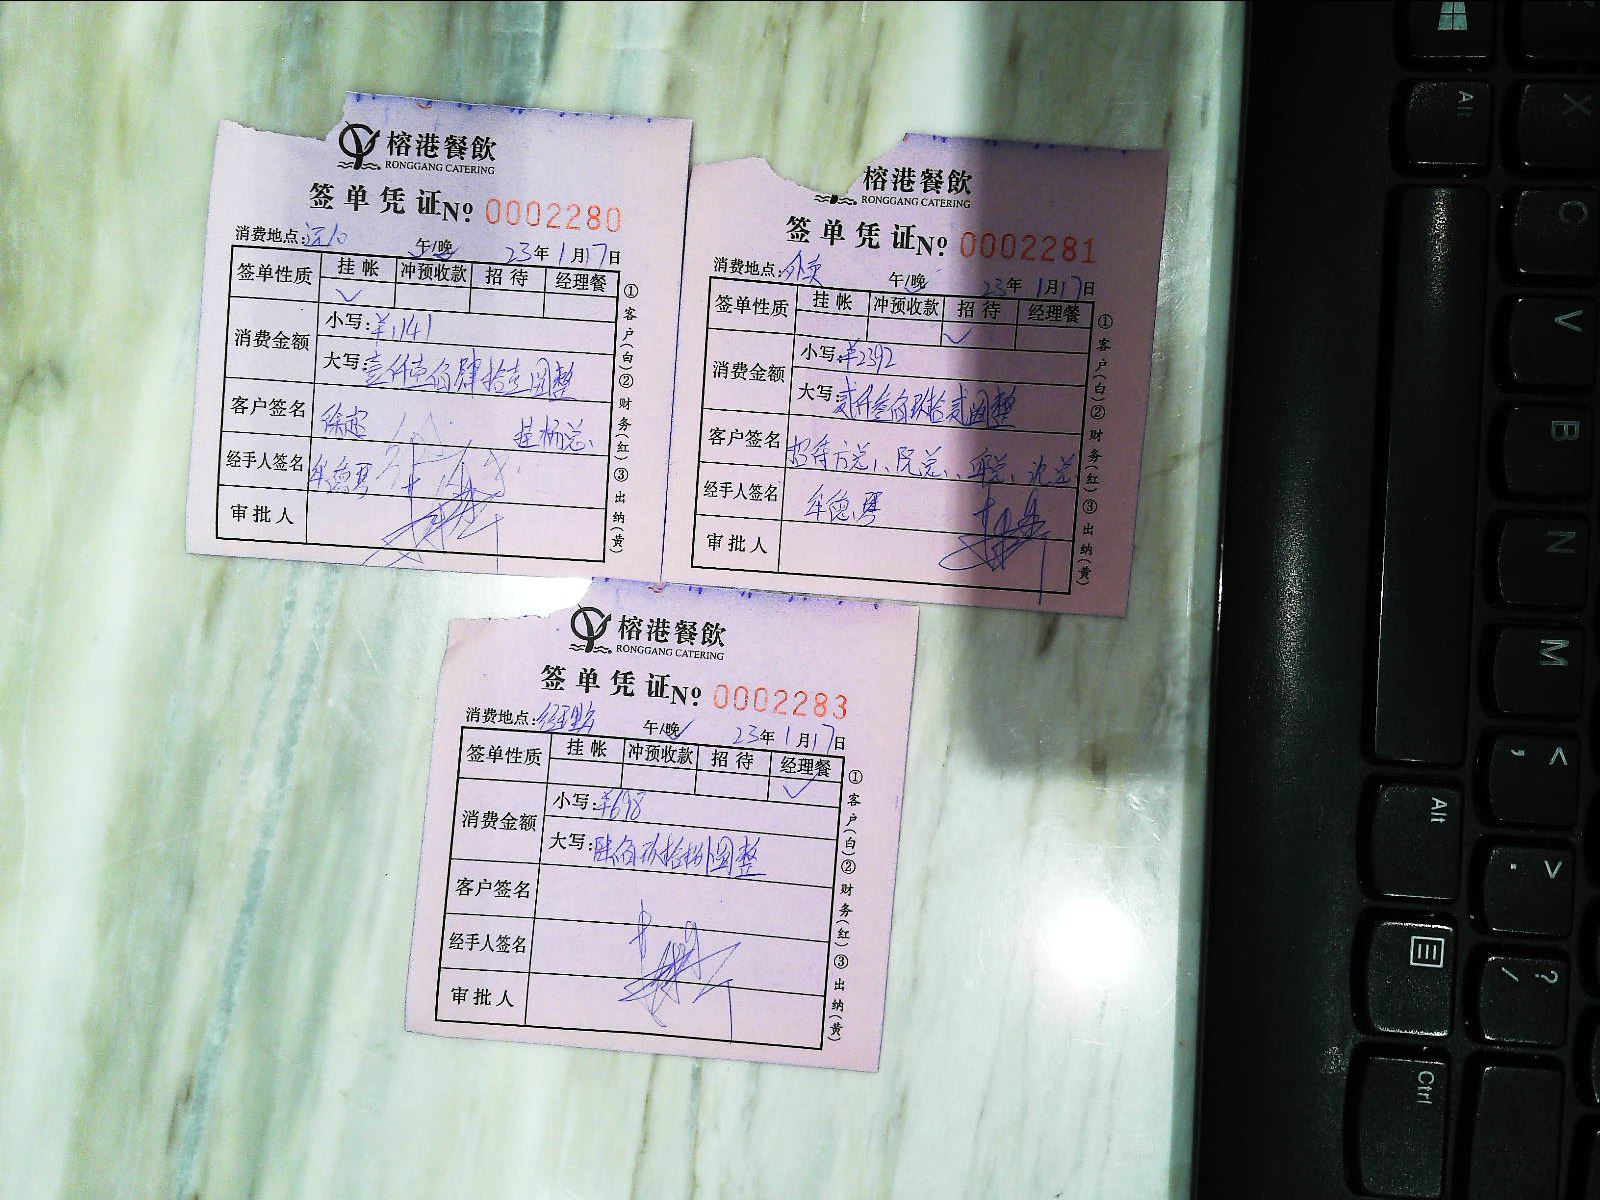 榕港餐飲
RONGGANG CATERING
签单凭证 Nº 0002280
消费地点: 午/晚 23年1月17日
签单性质 挂帐 冲预收款 招待 经理餐
✓
消费金额 小写:¥1141
大写:壹仟壹佰肆拾壹圆整
客户签名
经手人签名 牟德琴
审批人
①客户(白)②财务(红)③出纳(黄)
榕港餐飲
RONGGANG CATERING
签单凭证 Nº 0002281
消费地点:外卖 午/晚 23年1月17日
签单性质 挂帐 冲预收款 招待 经理餐
✓
消费金额 小写:¥2392
大写:贰仟叁佰玖拾贰圆整
客户签名 招待方总、阮总、 总、沈总
经手人签名 牟德琴
审批人
①客户(白)②财务(红)③出纳(黄)
榕港餐飲
RONGGANG CATERING
签单凭证 Nº 0002283
消费地点: 午/晚 23年1月17日
签单性质 挂帐 冲预收款 招待 经理餐
✓
消费金额 小写:¥698
大写:陆佰玖拾捌圆整
客户签名
经手人签名
审批人
①客户(白)②财务(红)③出纳(黄)
Alt
X
C
V
B
N
M
< ,
> .
? /
Alt
Ctrl